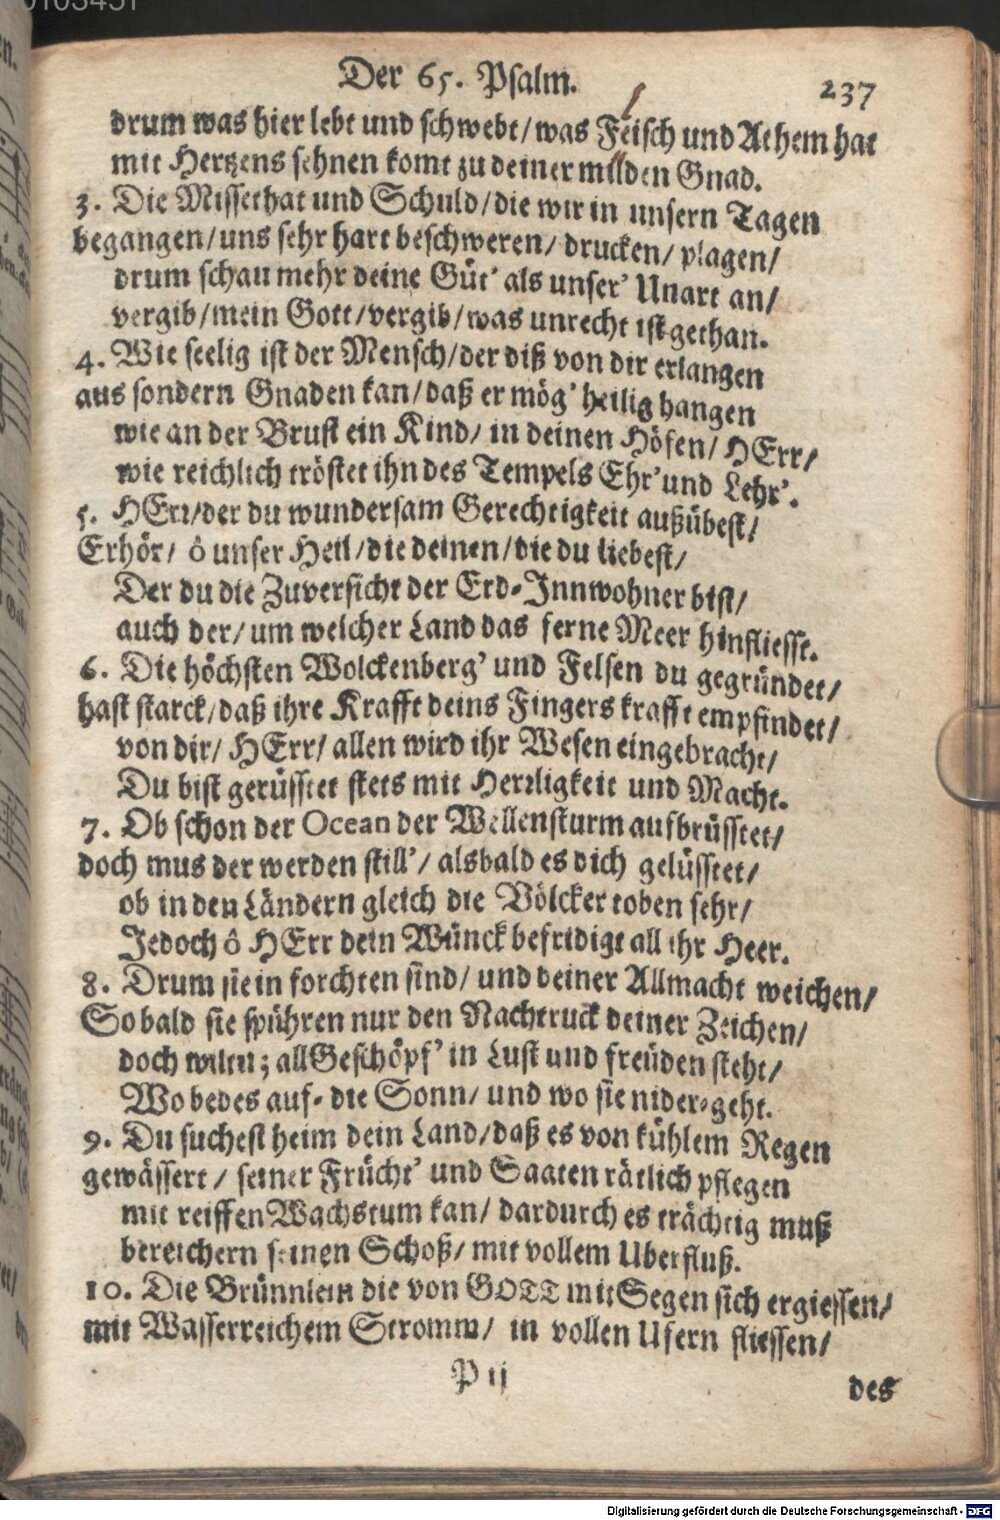 0103451
Der 65. Psalm. 237
drum was hier lebt und schwebt/was Feisch und Athem hat
mit Hertzens sehnen komt zu deiner milden Gnad.
3. Die Missethat und Schuld/die wir in unsern Tagen
begangen/uns sehr hart beschweren/drucken/plagen/
drum schau mehr deine Güt' als unser' Unart an/
vergib/mein Gott/vergib/was unrecht ist gethan.
4. Wie seelig ist der Mensch/der diß von dir erlangen
aus sondern Gnaden kan/daß er mög' heilig hangen
wie an der Brust ein Kind/in deinen Höfen/HErr/
wie reichlich tröstet ihn des Tempels Ehr' und Lehr'.
5. HErr/der du wundersam Gerechtigkeit außübest/
Erhör/ ô unser Heil/die deinen/die du liebest/
Der du die Zuversicht der Erd-Innwohner bist/
auch der/um welcher Land das ferne Meer hinfliesst.
6. Die höchsten Wolckenberg' und Felsen du gegründet/
hast starck/daß ihre Krafft deins Fingers krafft empfindet/
von dir/HErr/allen wird ihr Wesen eingebracht/
Du bist gerüsstet stets mit Herrligkeit und Macht.
7. Ob schon der Ocean der Wellensturm aufbrüsstet/
doch mus der werden still'/alsbald es dich gelüsstet/
ob in den Ländern gleich die Völcker toben sehr/
Jedoch ô HErr dein Wünck befridigt all ihr Heer.
8. Drum sie in forchten sind/und deiner Allmacht weichen/
So bald sie spühren nur den Nachtruck deiner Zeichen/
doch wiltu; all Geschöpf' in Lust und freüden steht/
Wo bedes auf- die Sonn/und wo sie nider-geht.
9. Du suchest heim dein Land/daß es von kühlem Regen
gewässert/seiner Frücht' und Saaten rätlich pflegen
mit reiffen Wachstum kan/dardurch es trächtig muß
bereichern seinen Schoß/mit vollem Uberfluß.
10. Die Brünnlein die von GOTT mit Segen sich ergiessen/
mit Wasserreichem Stromm/in vollen Ufern fliessen/
P ij
des
Digitalisierung gefördert durch die Deutsche Forschungsgemeinschaft - DFG